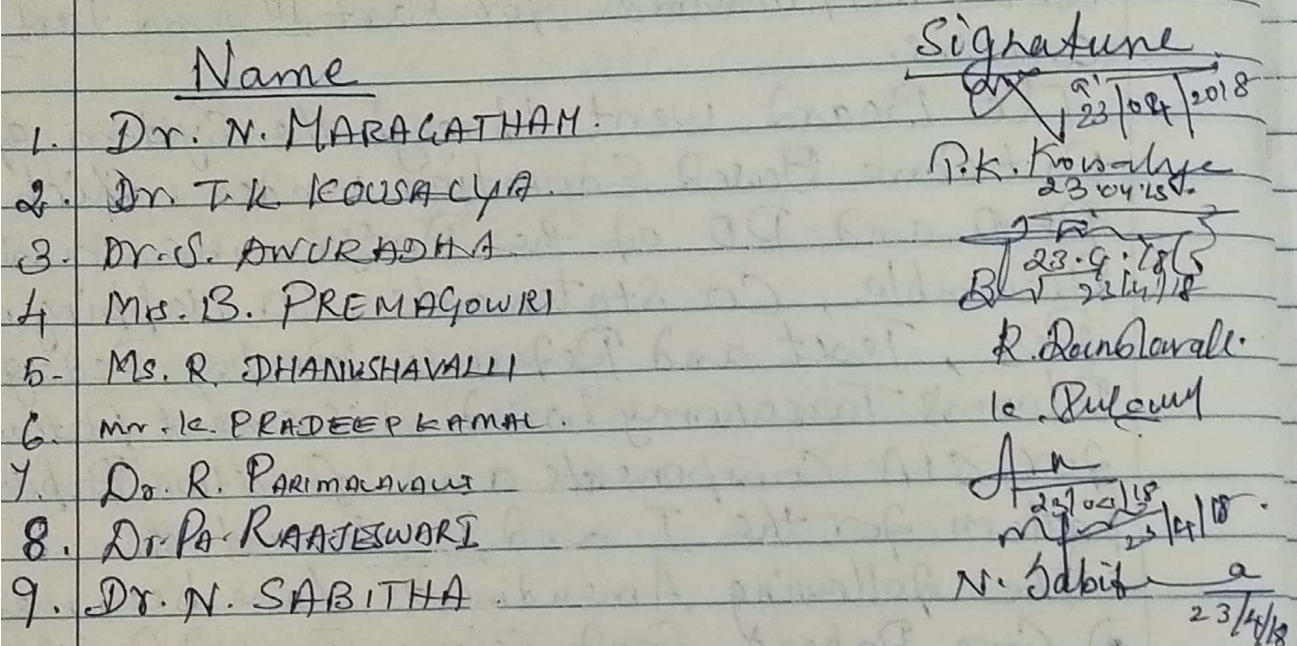 Name Signature
1. Dr. N. MARAGATHAM. 23/04/2018
2. Dr. T.K KOUSALYA. T.K. Kousalya
23.04.18
3. Dr. S. ANURADHA
4 Mrs. B. PREMAGOWRI 23/4/18
5- Ms. R. DHANUSHAVALLI
6. Mr. K. PRADEEP KAMAL. K.
7. Dr. R. PARIMALAVALLI
23/04/18
8. Dr. PA. RAAJESWARI 23/4/18.
9. Dr. N. SABITHA N. Sabitha
23/4/18